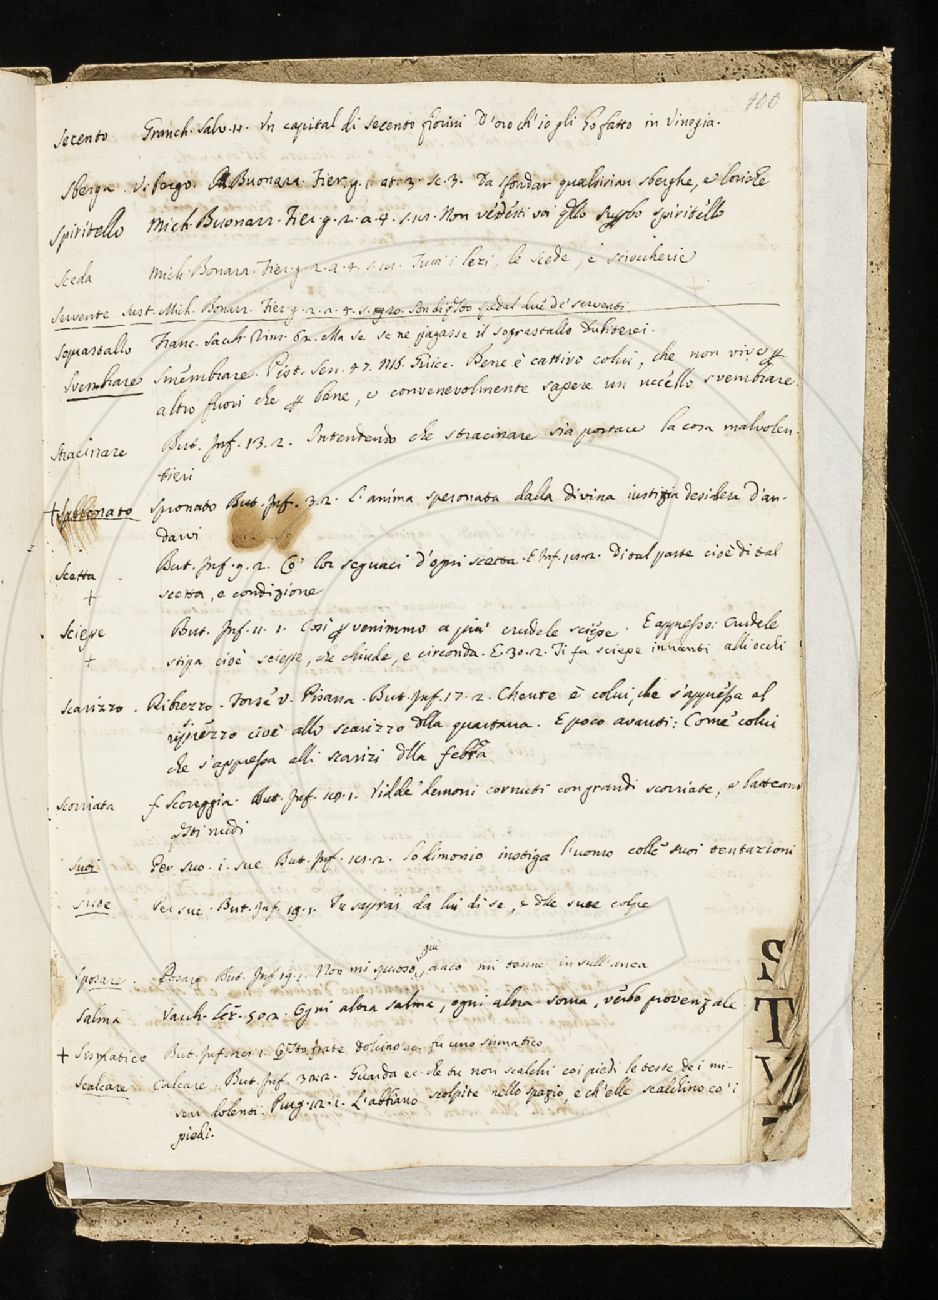 100
Secento Granch. Salv. 11. In capital di secento fiorini D'oro ch'io gli ho fatto in Vinegia.
Sberga. Usbergo. Buonarr. Fier. g. 1. at. 3. sc. 3. Da sfondar qualsisian sberghe, e loriche
Spiritello Mich. Buonarr. Fier. g. 2. a. 4. s. Non vedesti voi qllo spiritello
Sceda Mich. Bonarr. Fier. g. 2. a. 4. s. Fuor i lezi, le scede, e sciocherie
Servente Sust. Mich. Bonarr. Fier. g. 2. a. 4. s. de' serventi
Soprastallo Franc. Sacch. Rim. 62. Ma se se ne pagasse il soprastallo Dubiterei.
Svembrare Smembrare. Pist. Sen. 47. MS. Guicc. Bene è cattivo colui, che non vive p
altro fuori che p bene, e convenevolmente sapere un uccello svembrare.
Stracinare But. Inf. 13. 2. Intendendo che stracinare sia portare la cosa malvolen-
tieri
+ Spronato But. Inf. 3. 2. L'anima speronata dalla divina iustizia desidera d'an-
darvi
Scetta But. Inf. 9. 2. Co' lor seguaci d'ogni scetta. E Inf. di tal parte cioè di tal
+ scetta, e condizione
Sciepe But. Inf. 11. 1. Così pvenimmo a più crudele sciepe. E appresso: Crudele
+ stipa cioè scieppe, che chiude, e circonda. E 30. 2. Ti fa sciepe innanti alli occhi
Scarizzo. Ribrezzo. Forse v. Pisana. But. Inf. 17. 2. Chente è colui, che s'appressa al
riprezzo cioè allo scarizzo dlla quartana. E poco avanti: Come colui
che s'appressa alli scarizi dlla febbra
Scorriata f. Scoreggia. But. Inf. 18. 1. Viddè demoni cornuti con grandi scorriate, e batteano
qsti nudi
Suoi Per suo. i. sue But. Inf. 2. Lo dimonio instiga l'uomo colle suoi tentazioni
suoe Per sue. But. Inf. 19. 1. Tu saprai da lui di se, e dlle suoe colpe
già
Sposare. Posare But. Inf. 19. 1. Non mi sposò, anco mi tenne in sull'anca
Salma Vacch. Ler. 502. Ogni altra salma, ogni altra soma, verbo provenzale.
+ Sismatico But. Inf. 28. 1. Qsto frate Dolcino ec. fu uno sismatico
Scalcare Calcare. But. Inf. 32. 2. Guarda ec. che tu non scalchi coi piedi le teste de i mi-
seri dolenti. Purg. 12. 1. L'abbiano scolpite nello spazio, e ch'elle scalchino co' i
piedi.
S
T
V